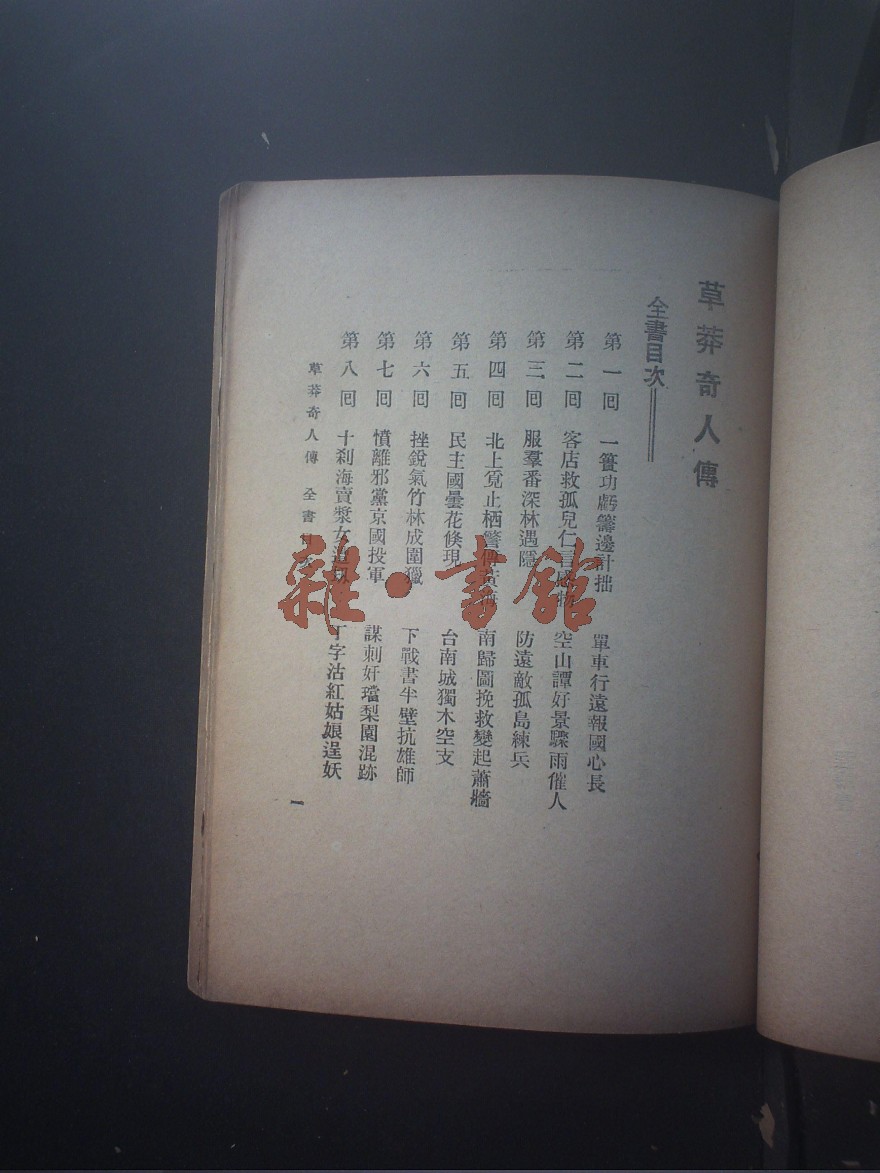 草莽奇人傳
全書目次
第一回 一簣功虧籌邊計拙 單車行遠報國心長
第二回 客店救孤兒仁言感物 空山譚好景驟雨催人
第三回 服羣番深林遇隱 防遠敵孤島練兵
第四回 北上覓止栖警傳 南歸圖挽救變起蕭牆
第五回 民主國曇花倏現 台南城獨木空支
第六回 挫銳氣竹林成圍獵 下戰書半壁抗雄師
第七回 憤離邪黨京國投軍 謀刺奸璫梨園混跡
第八回 十刹海賣漿女 丁字沽紅姑娘逞妖
草莽奇人傳 全書目次
一
雜·書館